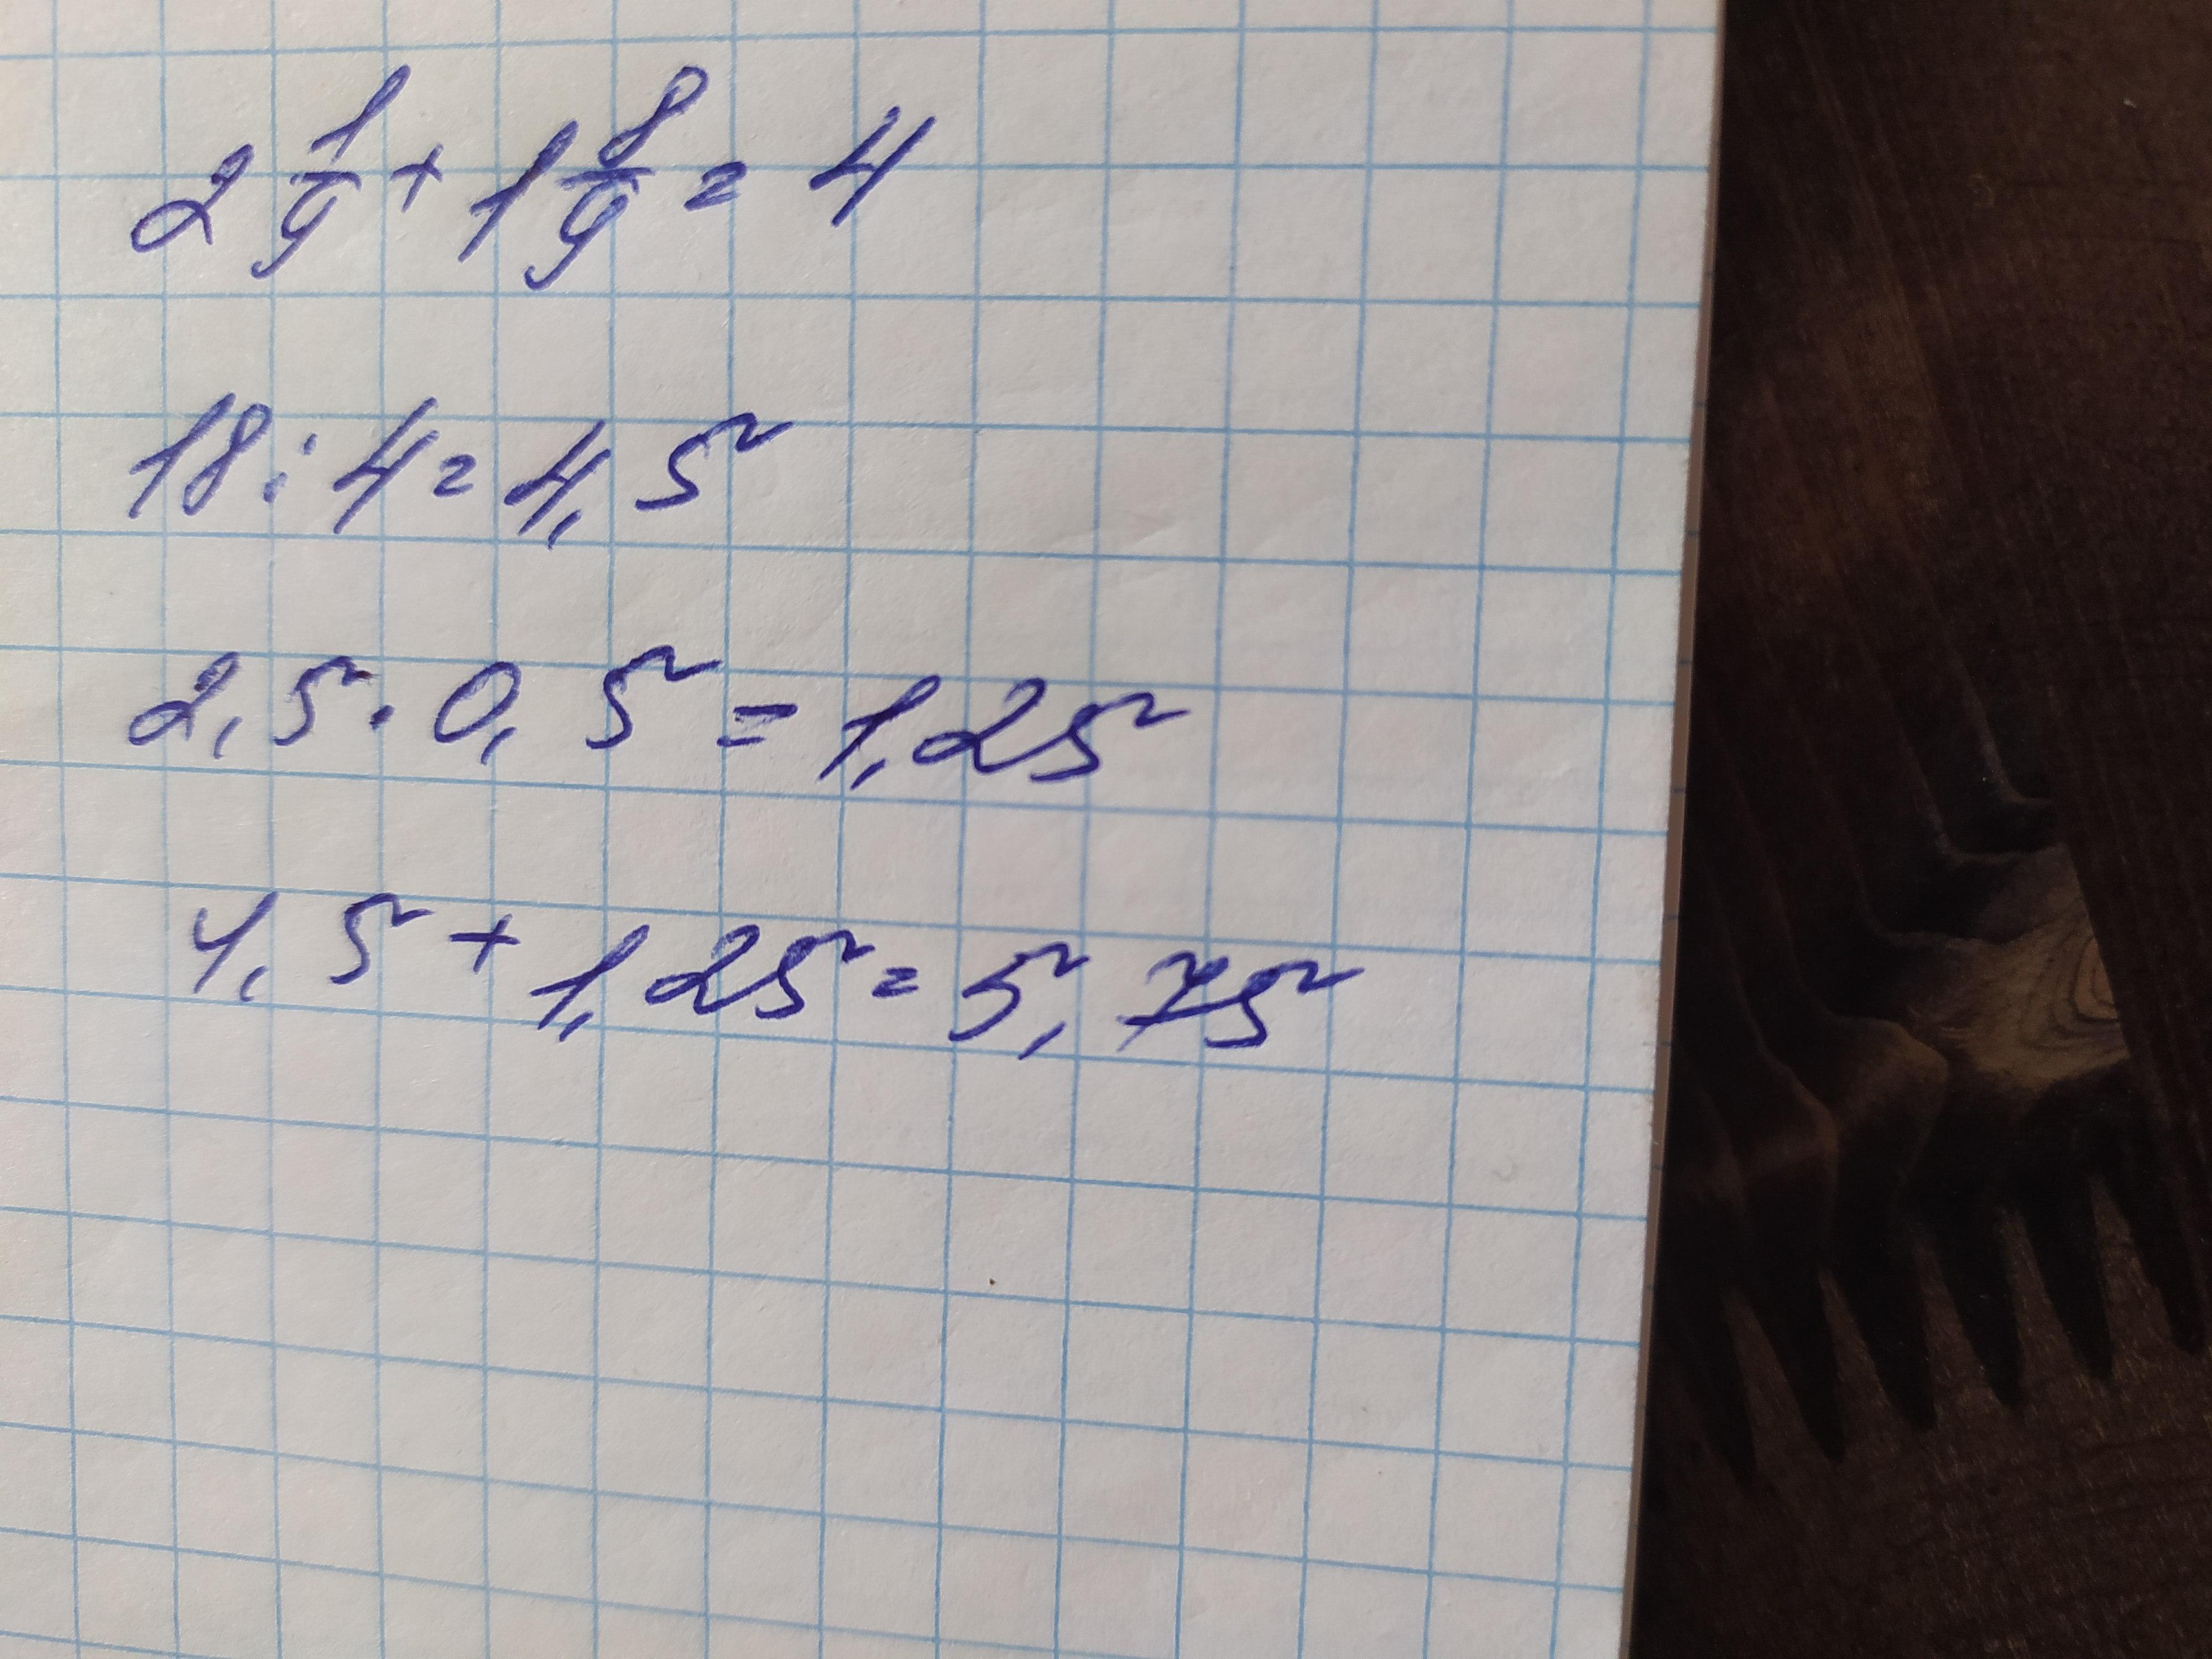 2 1/9 + 1 8/9 = 4
18 : 4 = 4,5
2,5 · 0,5 = 1,25
4,5 + 1,25 = 5,75